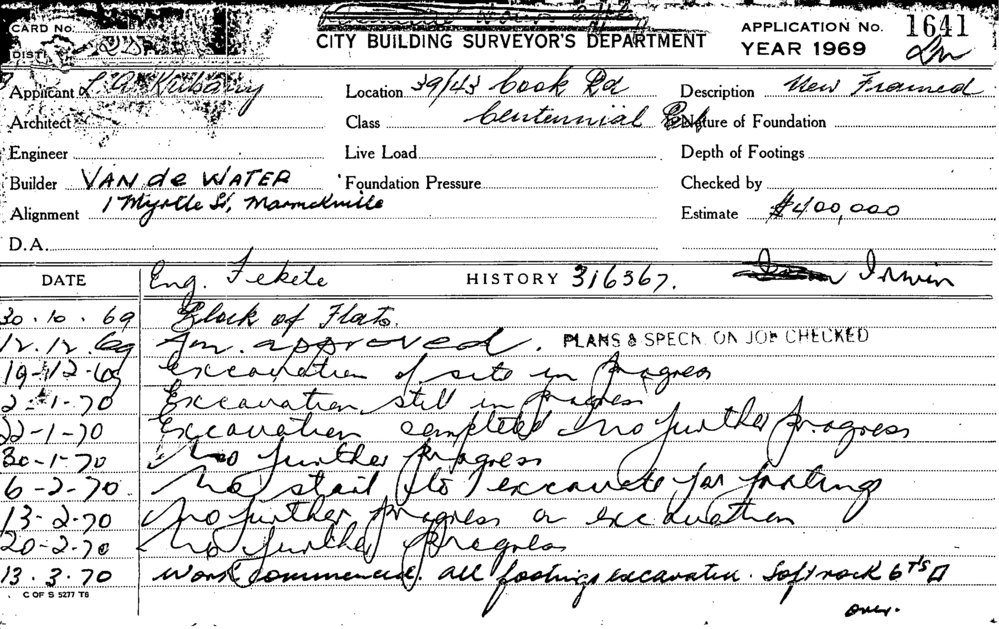 CARD No.
DIST.
CITY BUILDING SURVEYOR'S DEPARTMENT
APPLICATION No. 1641
YEAR 1969
Applicant L. A.
Location 39/43 Cook Rd
Description New Framed
Architect
Class Centennial
Nature of Foundation
Engineer
Live Load
Depth of Footings
Builder VAN de WATER
Foundation Pressure
Checked by
Alignment 1 Myrtle St, Marrickville
Estimate $400,000
D.A.
DATE
Eng. Fekete
HISTORY 316367.
Irwin
30.10.69 Block of Flats.
12.12.69 approved. PLANS & SPECN. ON JOB CHECKED
19-12-69 excavation of site in progress
2-1-70 Excavation still in progress
22-1-70 Excavation completed no further progress
30-1-70 No further progress
6-2-70. No start to excavate for footings
13-2-70 No further progress on excavation
20-2-70 No further progress
13.3.70 Work commenced. All footings excavated. Soft rock 6 T's □
C OF S 5277 T6
over.